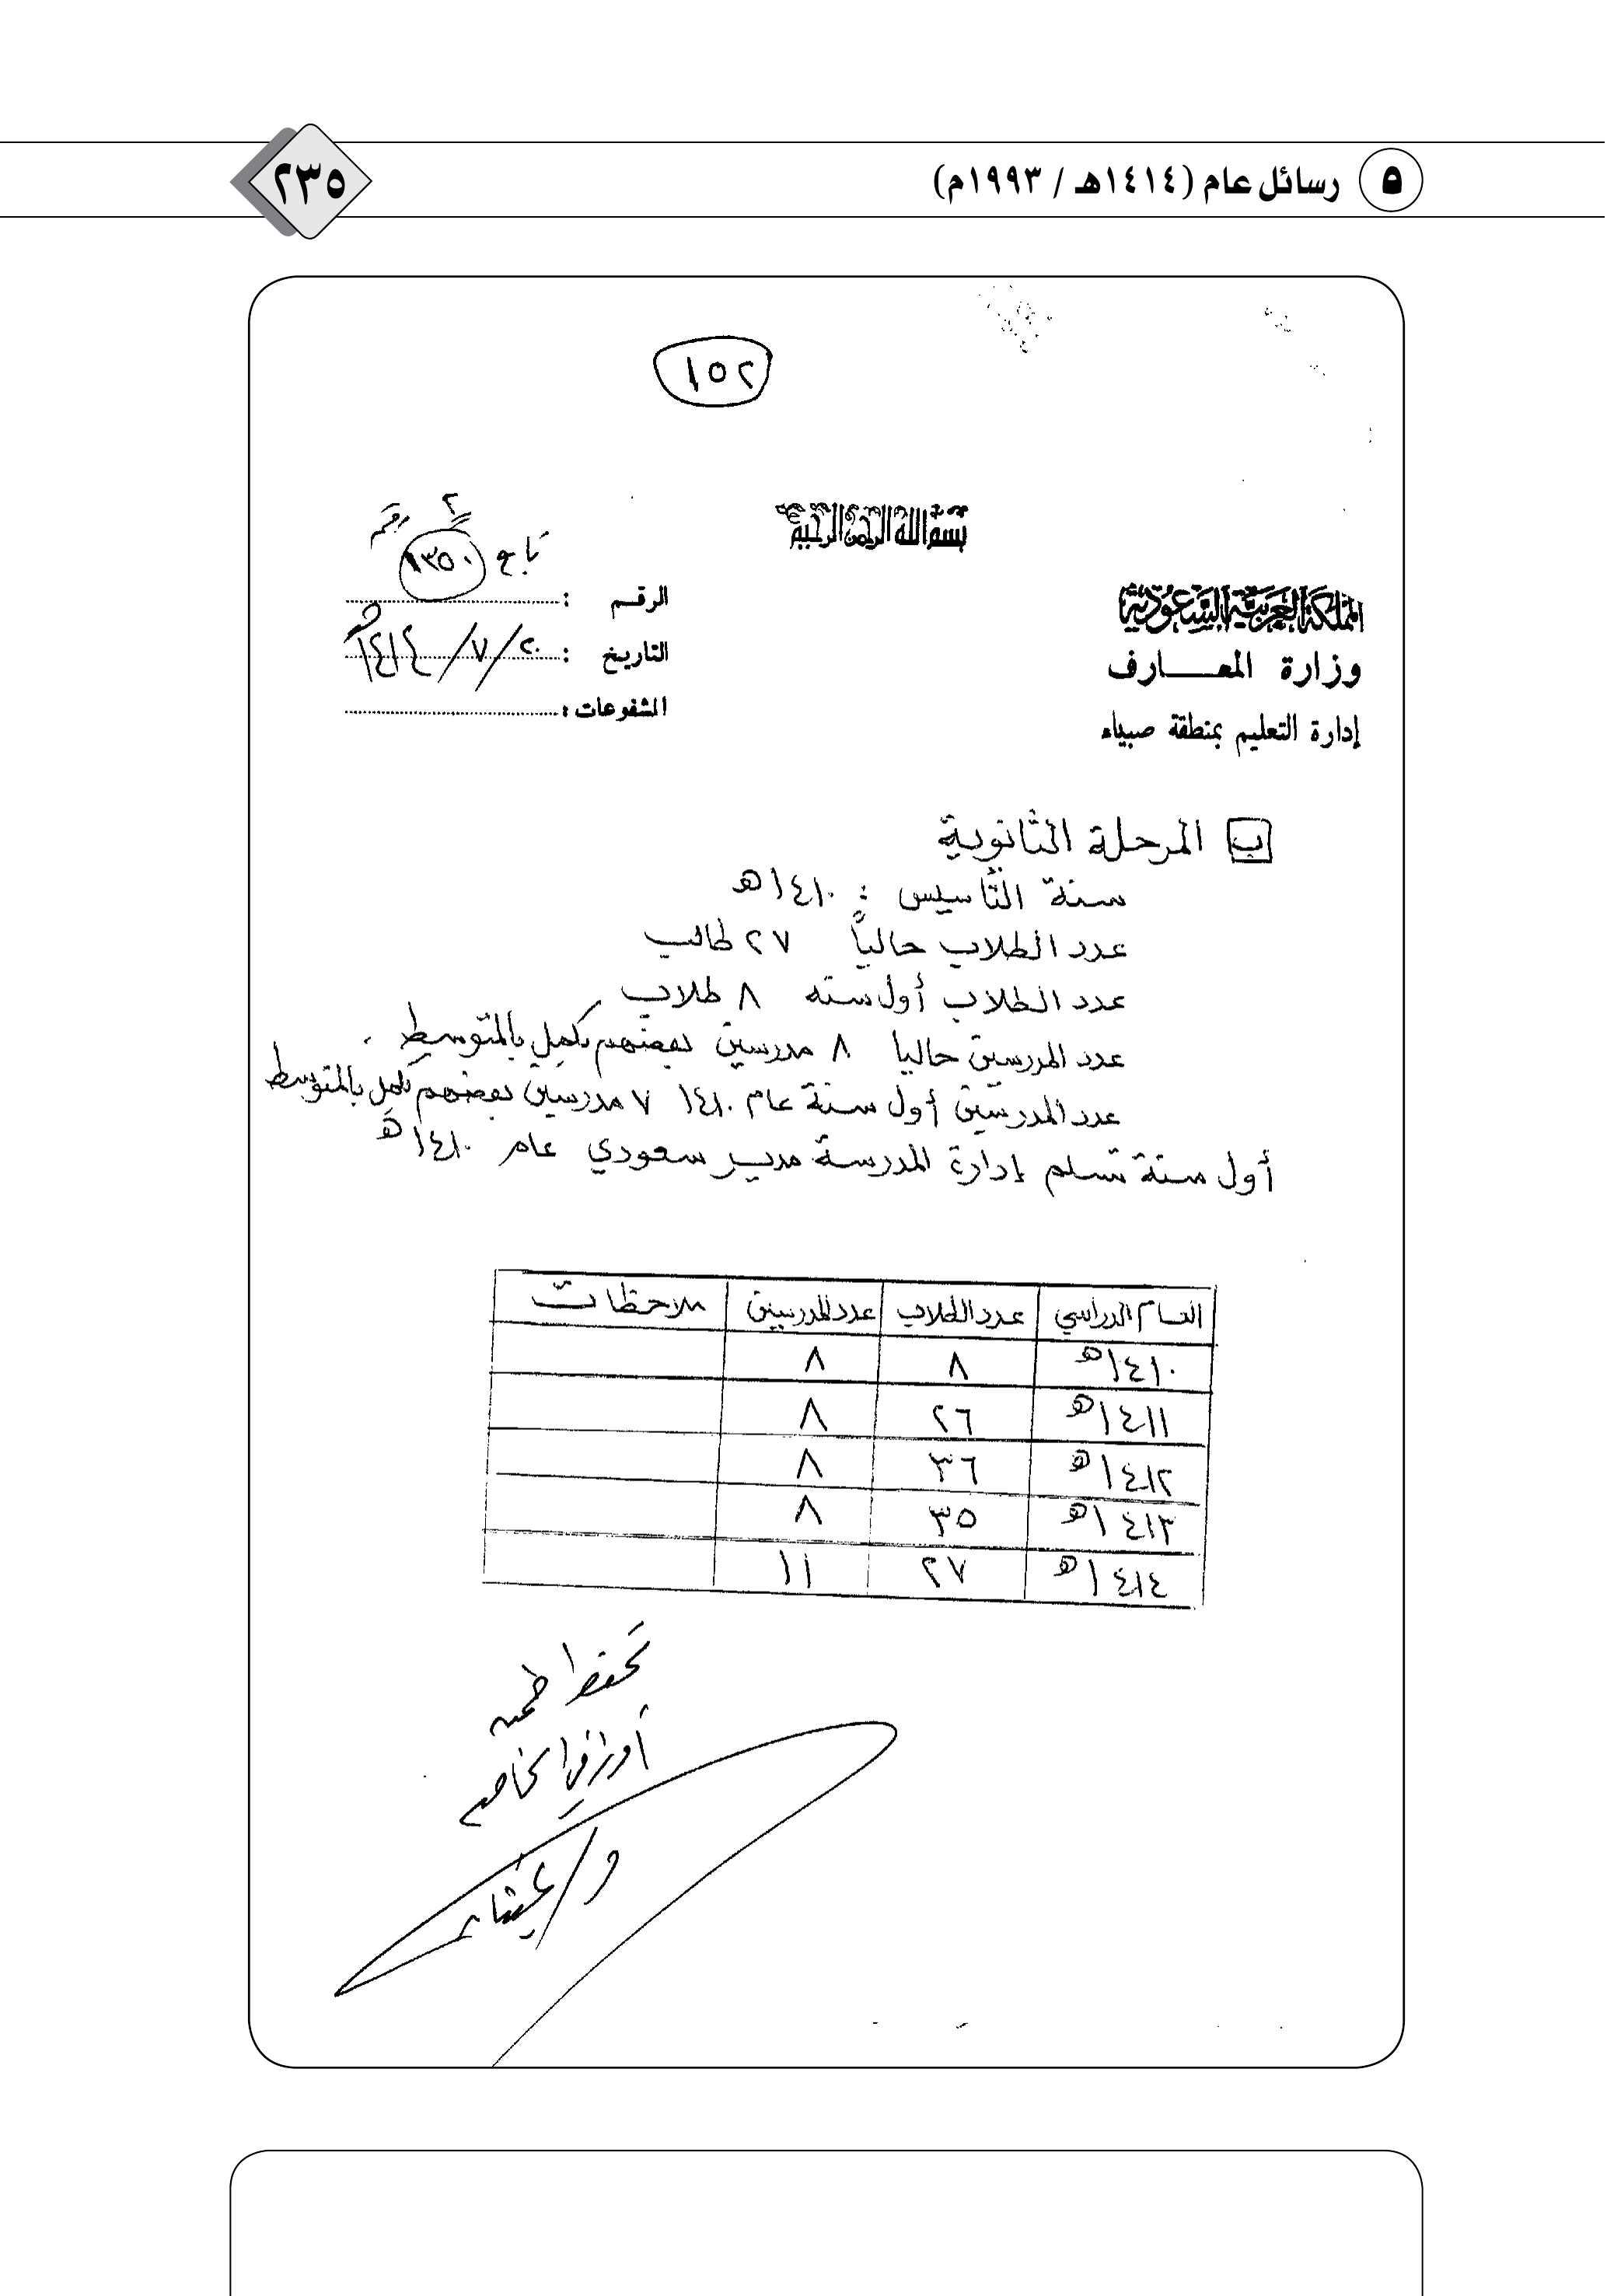 ٥ رسائل عام (١٤١٤هـ / ١٩٩٣م)
٢٣٥
١٥٢
بسم الله الرحمن الرحيم
المملكة العربية السعودية
وزارة المعارف
إدارة التعليم بمنطقة صبياء
تابع ١٣٥٠
الرقم :
التاريخ : ٢٠/٧/١٤١٤هـ
المشفوعات :
ب المرحلة الثانوية
سنة التأسيس : ١٤١٠هـ
عدد الطلاب حالياً ٢٧ طالب
عدد الطلاب أول سنه ٨ طلاب
عدد المدرسين حاليا ٨ مدرسين بعضهم يكمل بالمتوسط .
عدد المدرسين أول سنة عام ١٤١٠ ٧ مدرسين بعضهم يكمل بالمتوسط
أول سنة تسلم إدارة المدرسة مدير سعودي عام ١٤١٠هـ
العام الدراسي عدد الطلاب عدد المدرسين ملاحظات
١٤١٠هـ ٨ ٨
١٤١١هـ ٢٦ ٨
١٤١٢هـ ٣٦ ٨
١٤١٣هـ ٣٥ ٨
١٤١٤هـ ٢٧ ١١
تحفظ ضمن
أوراقي الخاصة